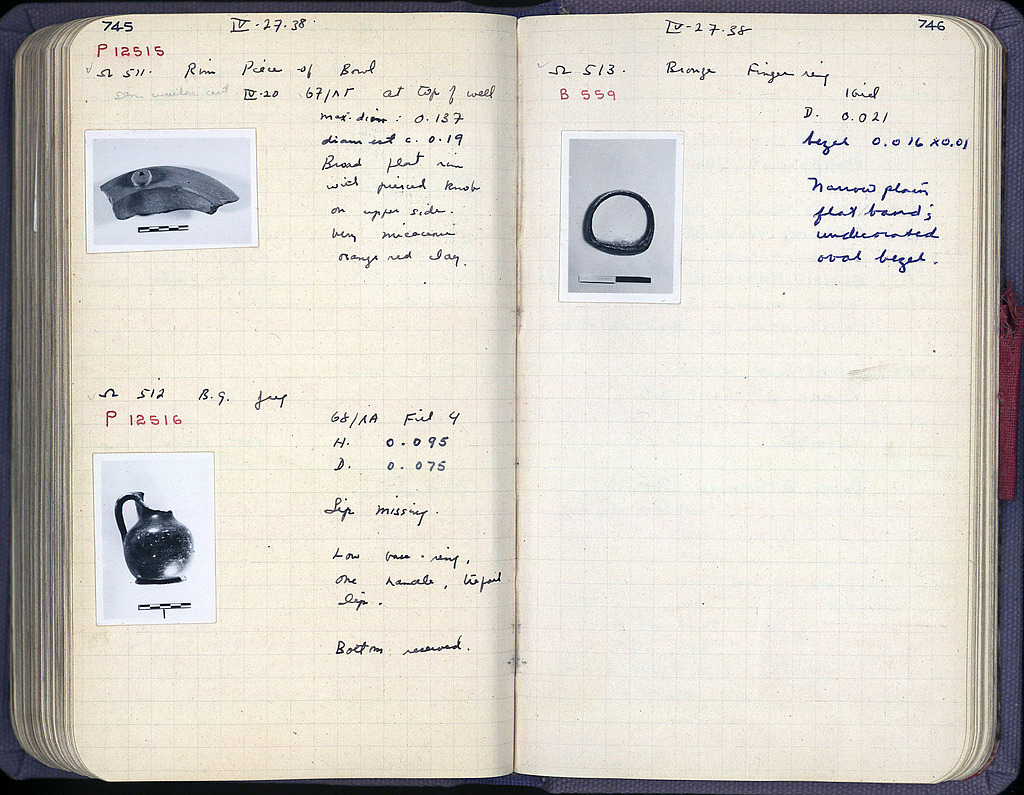 745
IV-27-38
P 12515
Ω 511. Rim Piece of Bowl
IV-20 67/ΛΓ at top of well
max. diam: 0.137
diam est c. 0.19
Broad flat rim
with pierced knob
on upper side.
Very micaceous
orange red clay.
Ω 512 B.G. Jug
P 12516
68/ΛΑ Fill 4
H. 0.095
D. 0.075
Lip missing.
Low base-ring,
one handle, trefoil
lip.
Bottom reserved.
IV-27-38
746
Ω 513. Bronze Finger ring
B 559
Ibid
D. 0.021
bezel 0.016 x 0.01
Narrow plain
flat band;
undecorated
oval bezel.